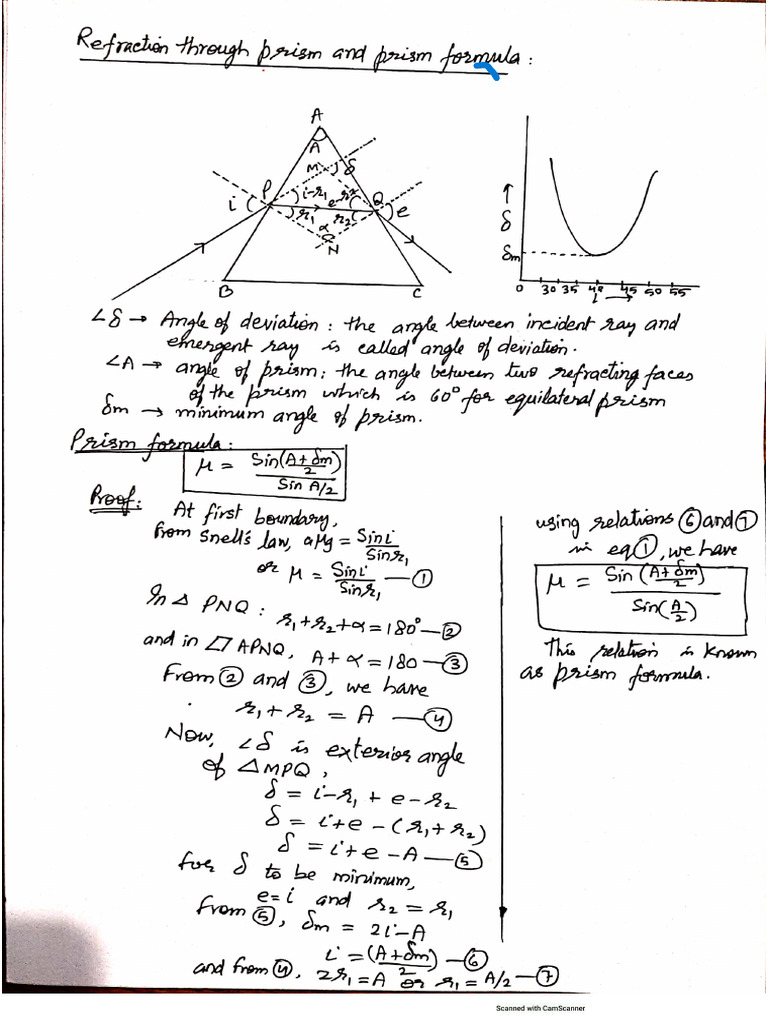 Refraction through prism and prism formula:
A
A
M
δ
P
i
i-r₁
e-r₂
Q
e
r₁
r₂
α
N
B
C
↑
δ
δm
0 30 35 40 45 50 55
i →
∠δ → Angle of deviation: the angle between incident ray and
emergent ray is called angle of deviation.
∠A → angle of prism; the angle between two refracting faces
of the prism which is 60° for equilateral prism
δm → minimum angle of prism.
Prism formula:
μ = Sin(A+δm)/2 / Sin A/2
Proof:
At first boundary,
from Snell's law, aμg = Sini/Sinr₁
or μ = Sini/Sinr₁ —①
In △ PNQ:
r₁+r₂+α=180° —②
and in ▱ APNQ, A+α=180 —③
From ② and ③, we have
r₁+r₂ = A —④
Now, ∠δ is exterior angle
of △MPQ,
δ = i-r₁ + e-r₂
δ = i+e-(r₁+r₂)
δ = i+e-A —⑤
for δ to be minimum,
e=i and r₂=r₁
from ⑤, δm = 2i-A
i = (A+δm)/2 —⑥
and from ④, 2r₁=A or r₁=A/2 —⑦
using relations ⑥ and ⑦
in eq ①, we have
μ = Sin (A+δm)/2 / Sin(A/2)
This relation is known
as prism formula.
Scanned with CamScanner